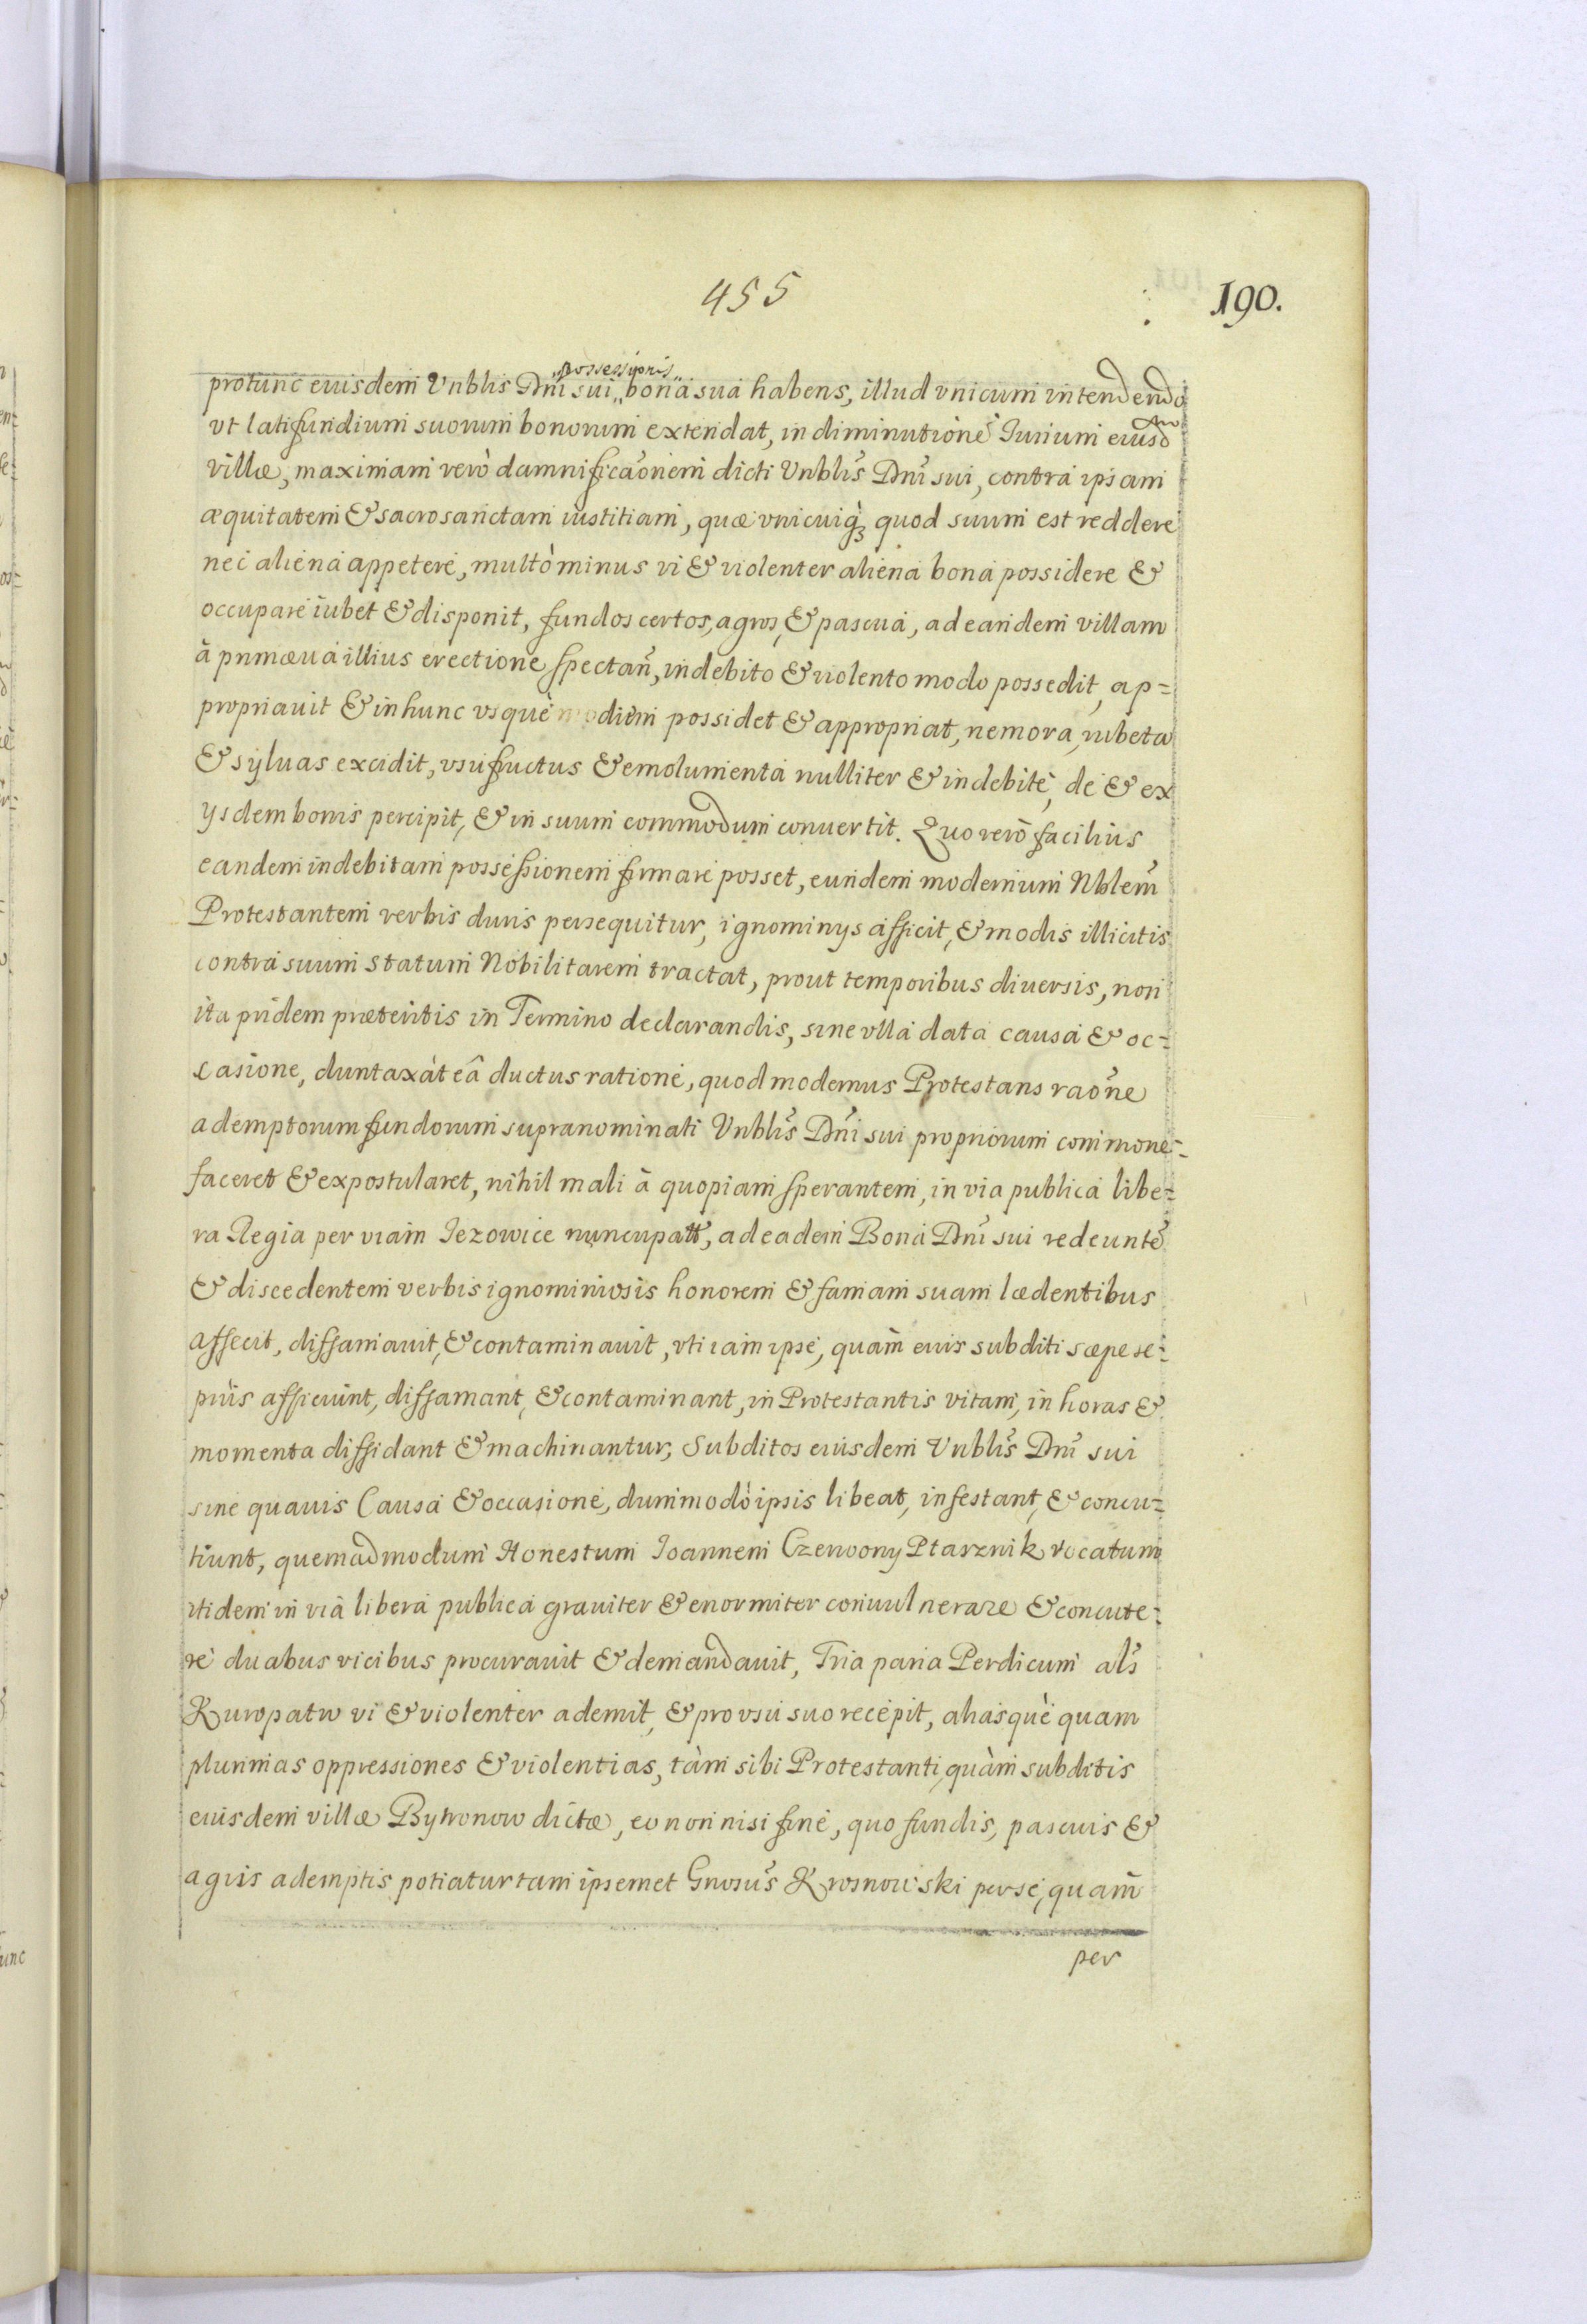 455
190.
protunc eiusdem Vnblis Dni sui „possessionis„ bona sua habens, illud vnicum intendendo
vt latifundium suorum bonorum extendat, in diminutione Iurium eiusd
villæ, maximam verò damnificaonem dicti Vnblis Dni sui, contra ipsam
æquitatem & sacrosanctam iustitiam, quæ vnicuiq₃ quod suum est reddere
nec aliena appetere, multò minus vi & violenter aliena bona possidere &
occupare iubet & disponit, fundos certos, agros, & pascua, ad eandem villam
à primæua illius erectione spectan, indebito & violento modo possedit, ap=
propriauit & in hunc vsque diem possidet & appropriat, nemora, rubeta
& syluas excidit, vsufructus & emolumenta nulliter & indebitè, de & ex
ysdem bonis percipit, & in suum commodum conuertit. Quo verò facilius
eandem indebitam possessionem firmare posset, eundem modernum Nblem
Protestantem verbis duris persequitur, ignominys afficit, & modis illicitis
contra suum statum Nobilitarem tractat, prout temporibus diuersis, non
ita pridem præteritis in Termino declarandis, sine vlla data causa & oc=
casione, duntaxàt eâ ductus ratione, quod modernus Protestans raone
ademptorum fundorum supranominati Vnblis Dni sui propriorum commone=
faceret & expostularet, nihil mali à quopiam sperantem, in via publica libe=
ra Regia per viam Iezowice nuncupatt, ad eadem Bona Dni sui redeunte
& discedentem verbis ignominiosis honorem & famam suam lædentibus
affecit, diffamauit, & contaminauit, vti iam ipse, quàm eius subditi sæpe se=
piùs afficiunt, diffamant, & contaminant, in Protestantis vitam, in horas &
momenta diffidant & machinantur, Subditos eiusdem Vnblis Dni sui
sine quauis Causa & occasione, dummodò ipsis libeat, infestant, & concu=
tiunt, quemadmodum Honestum Ioannem Czerwony Ptasznik vocatum
itidem in via libera publica grauiter & enormiter conuulnerare & concute=
re duabus vicibus procurauit & demandauit, Tria paria Perdicum als
Kuropatw vi & violenter ademit, & pro vsu suo recepit, aliasquè quam
plurimas oppressiones & violentias, tàm sibi Protestanti, quàm subditis
eiusdem villæ Bytronow dictæ, eo non nisi fine, quo fundis, pascuis &
agris ademptis potiatur tam ipsemet Gnosus Krosnowski per se, quam
per